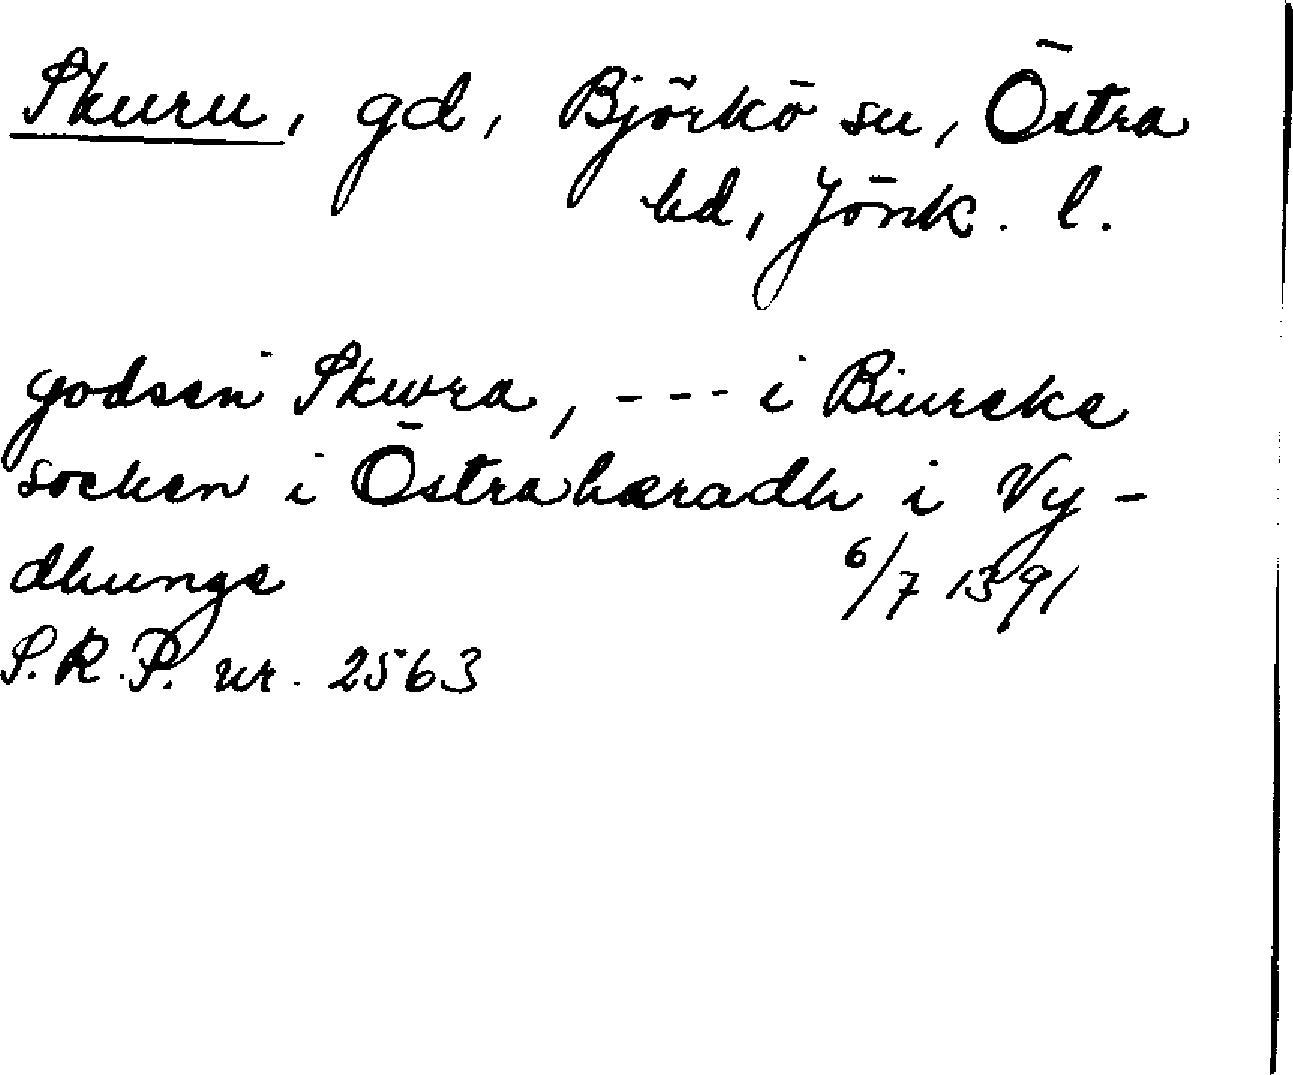 Skuru, gd, Björkö sn, Östra
hd, Jönk. l.
godsen Skwra, --- i Biureke
socken i Östrahæradh i Vy-
dhunge 6/7 1391
S.R.P. nr. 2563